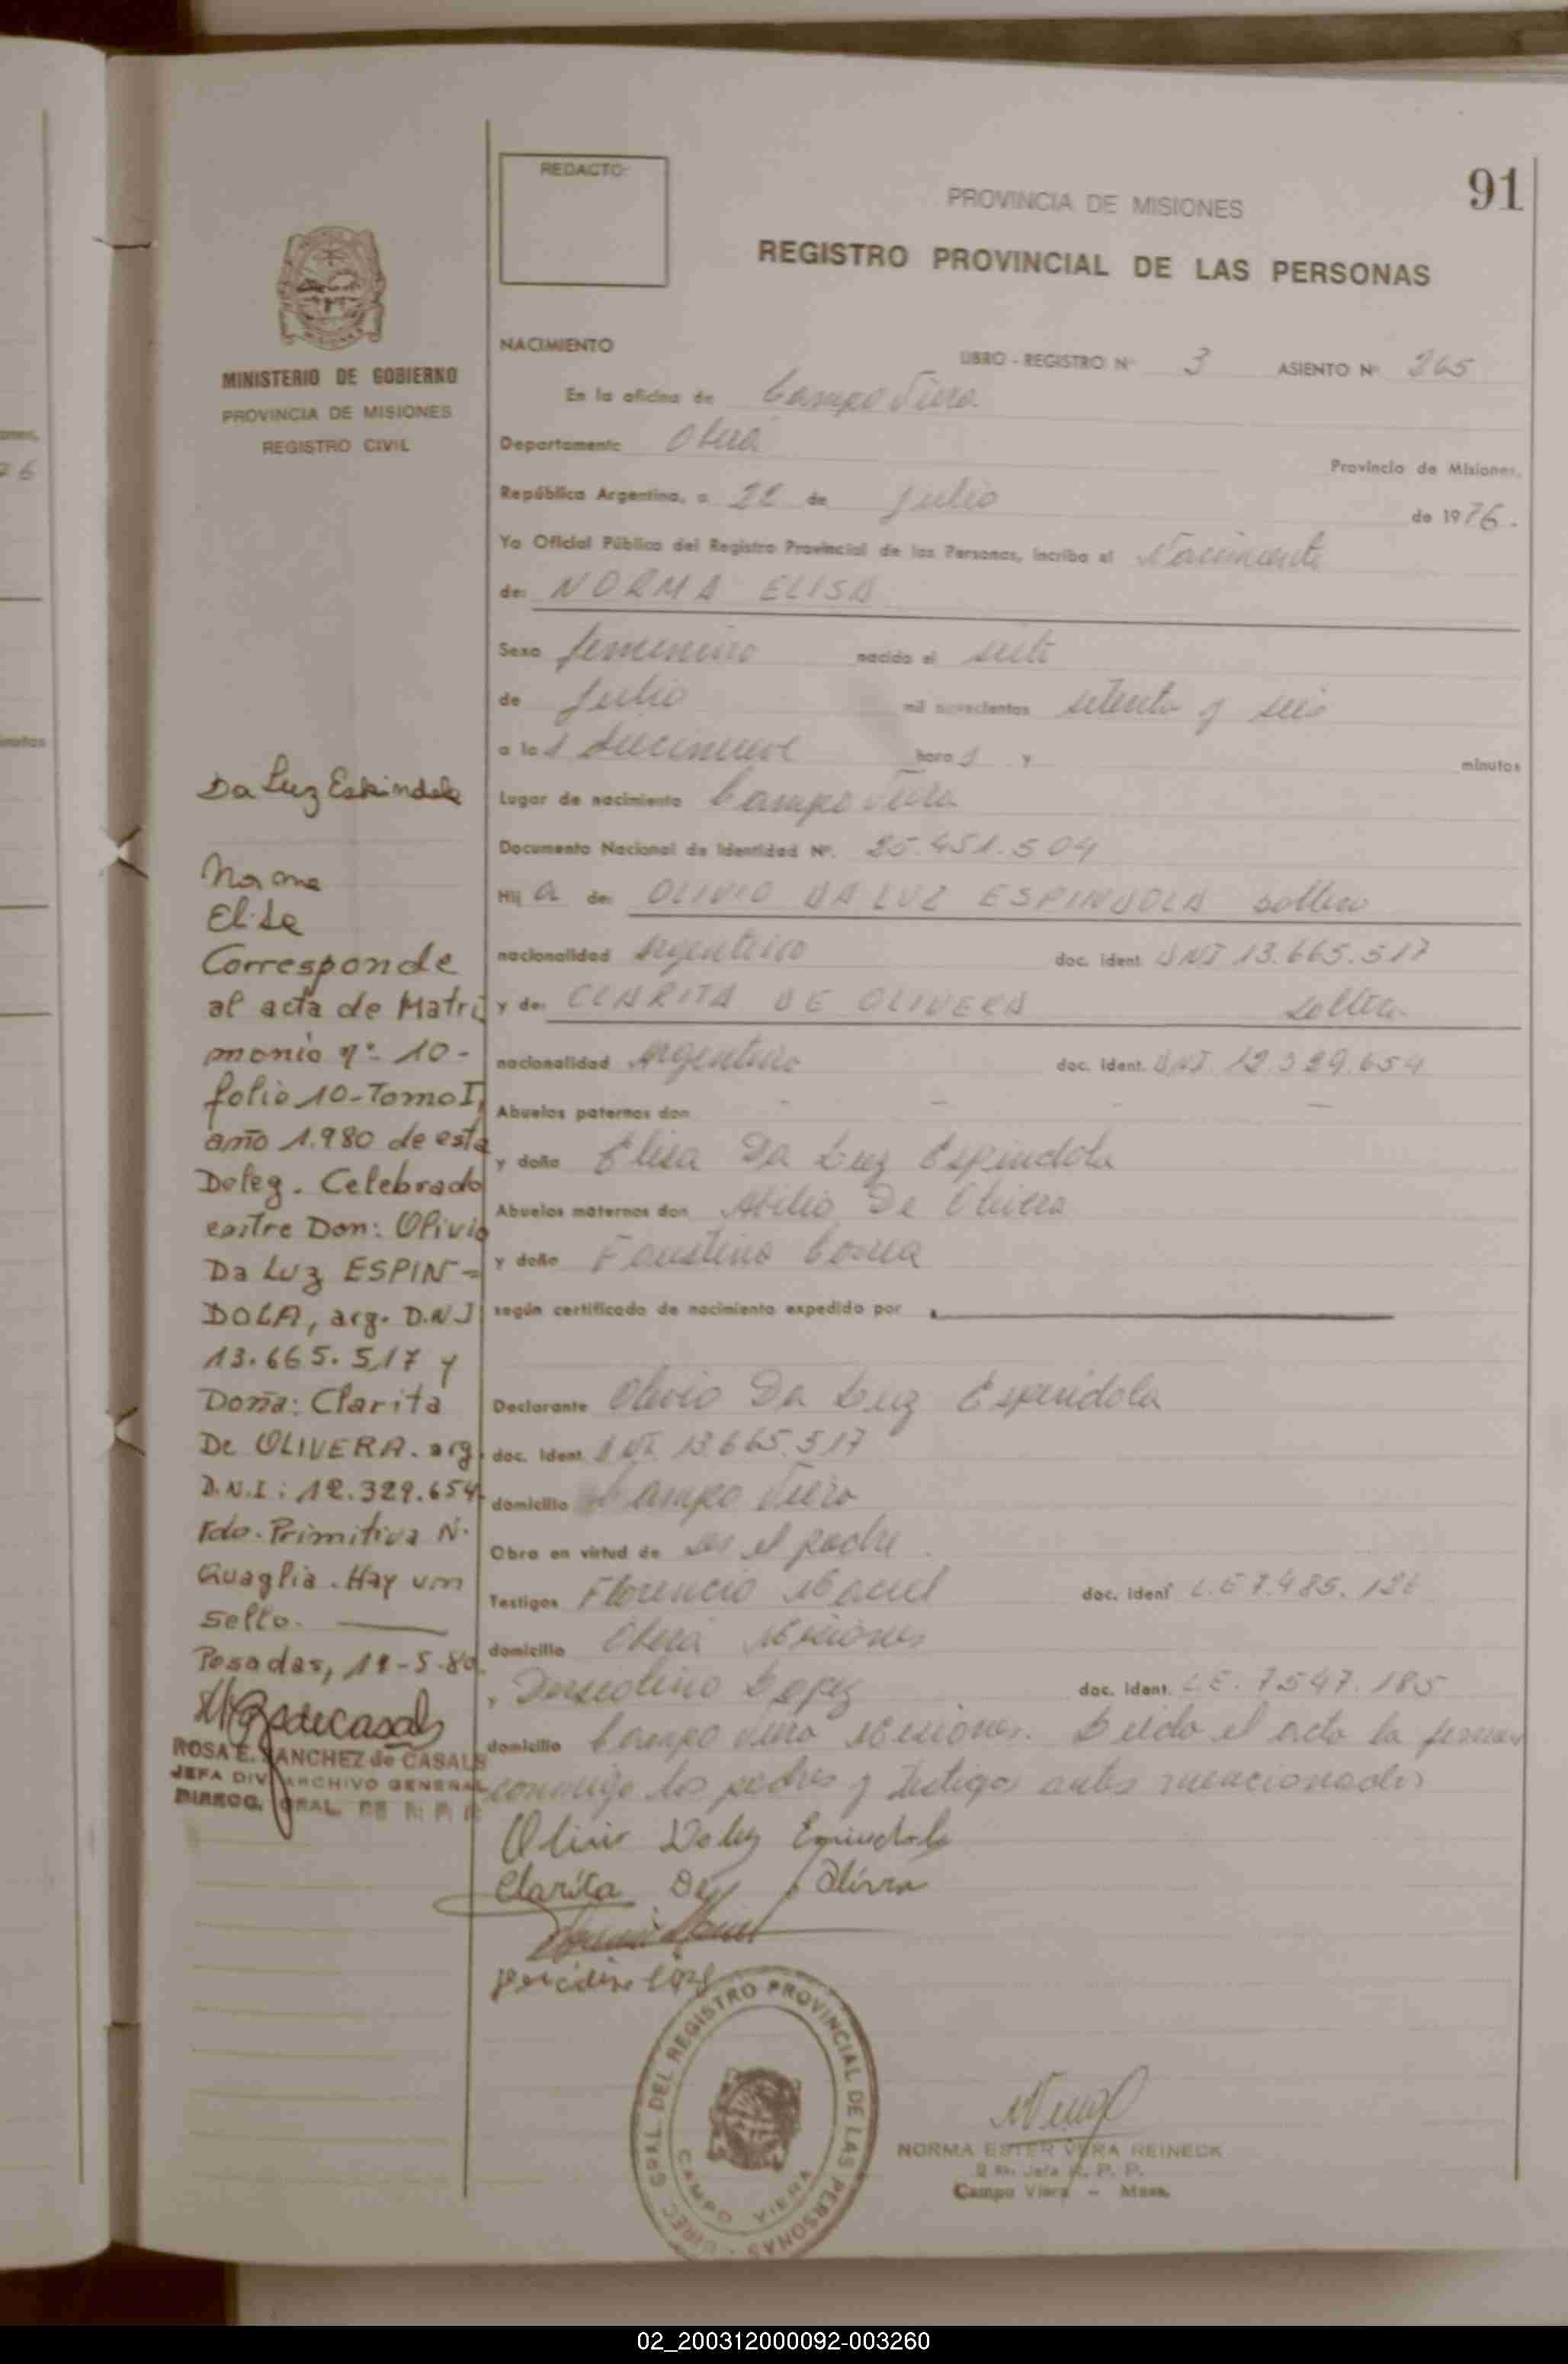 91
REDACTO:
PROVINCIA DE MISIONES
REGISTRO PROVINCIAL DE LAS PERSONAS
MINISTERIO DE GOBIERNO
PROVINCIA DE MISIONES
REGISTRO CIVIL
NACIMIENTO
LIBRO - REGISTRO Nº 3 ASIENTO Nº 265
En la oficina de Campo Viera
Departamento Oberá
Provincia de Misiones,
República Argentina, a 22 de Julio de 1976.
Yo Oficial Público del Registro Provincial de las Personas, incribo el Nacimiento
de: NORMA ELISA
Sexo femenino nacido el siete
de Julio mil novecientos setenta y seis
a las diecinueve horas y minutos
Lugar de nacimiento Campo Viera
Documento Nacional de Identidad Nº. 25.451.504
Hija de: OLIVIO DA LUZ ESPINDOLA soltero
nacionalidad Argentino doc. ident. DNI 13.665.517
y de: CLARITA DE OLIVERA soltera
nacionalidad Argentina doc. ident. DNI. 12.329.654
Abuelos paternos don - - - -
y doña Elisa Da Luz Espindola
Abuelos maternos don Abilio De Olivera
y doña Faustina
según certificado de nacimiento expedido por
Declarante Olivio Da Luz Espindola
doc. ident. DNI 13.665.517
domicilio Campo Viera
Obra en virtud de ser el padre
Testigos Florencio Maciel doc. ident L.E 7.485.
domicilio Oberá Misiones
y Lopez doc. ident. L.E. 7.547.185
domicilio Campo Viera Misiones. Leida el acta la firman
conmigo los padres y testigos antes mencionados
Da Luz Espindola
Norma
Elisa
Corresponde
al acta de Matri
monio nº 10-
folio 10-Tomo I,
año 1.980 de esta
Deleg. Celebrado
entre Don: Olivio
Da Luz ESPIN-
DOLA, arg. D.N.I
13.665.517 y
Doña: Clarita
De OLIVERA. arg.
D.N.I: 12.329.654.
Fdo. Primitiva N.
Quaglia. Hay un
Sello.
Posadas, 19-5-80.
ROSA E. SANCHEZ de CASALS
JEFA DIV. ARCHIVO GENERAL
DIRECC. GRAL. DE
Olivio Da luz Espindola
Clarita De Olivera
DIREC. GRAL. DEL REGISTRO PROVINCIAL DE LAS PERSONAS
CAMPO VIERA
NORMA ESTER VERA REINECK
Jefa R. P. P.
Campo Viera - Mnes.
02_200312000092-003260